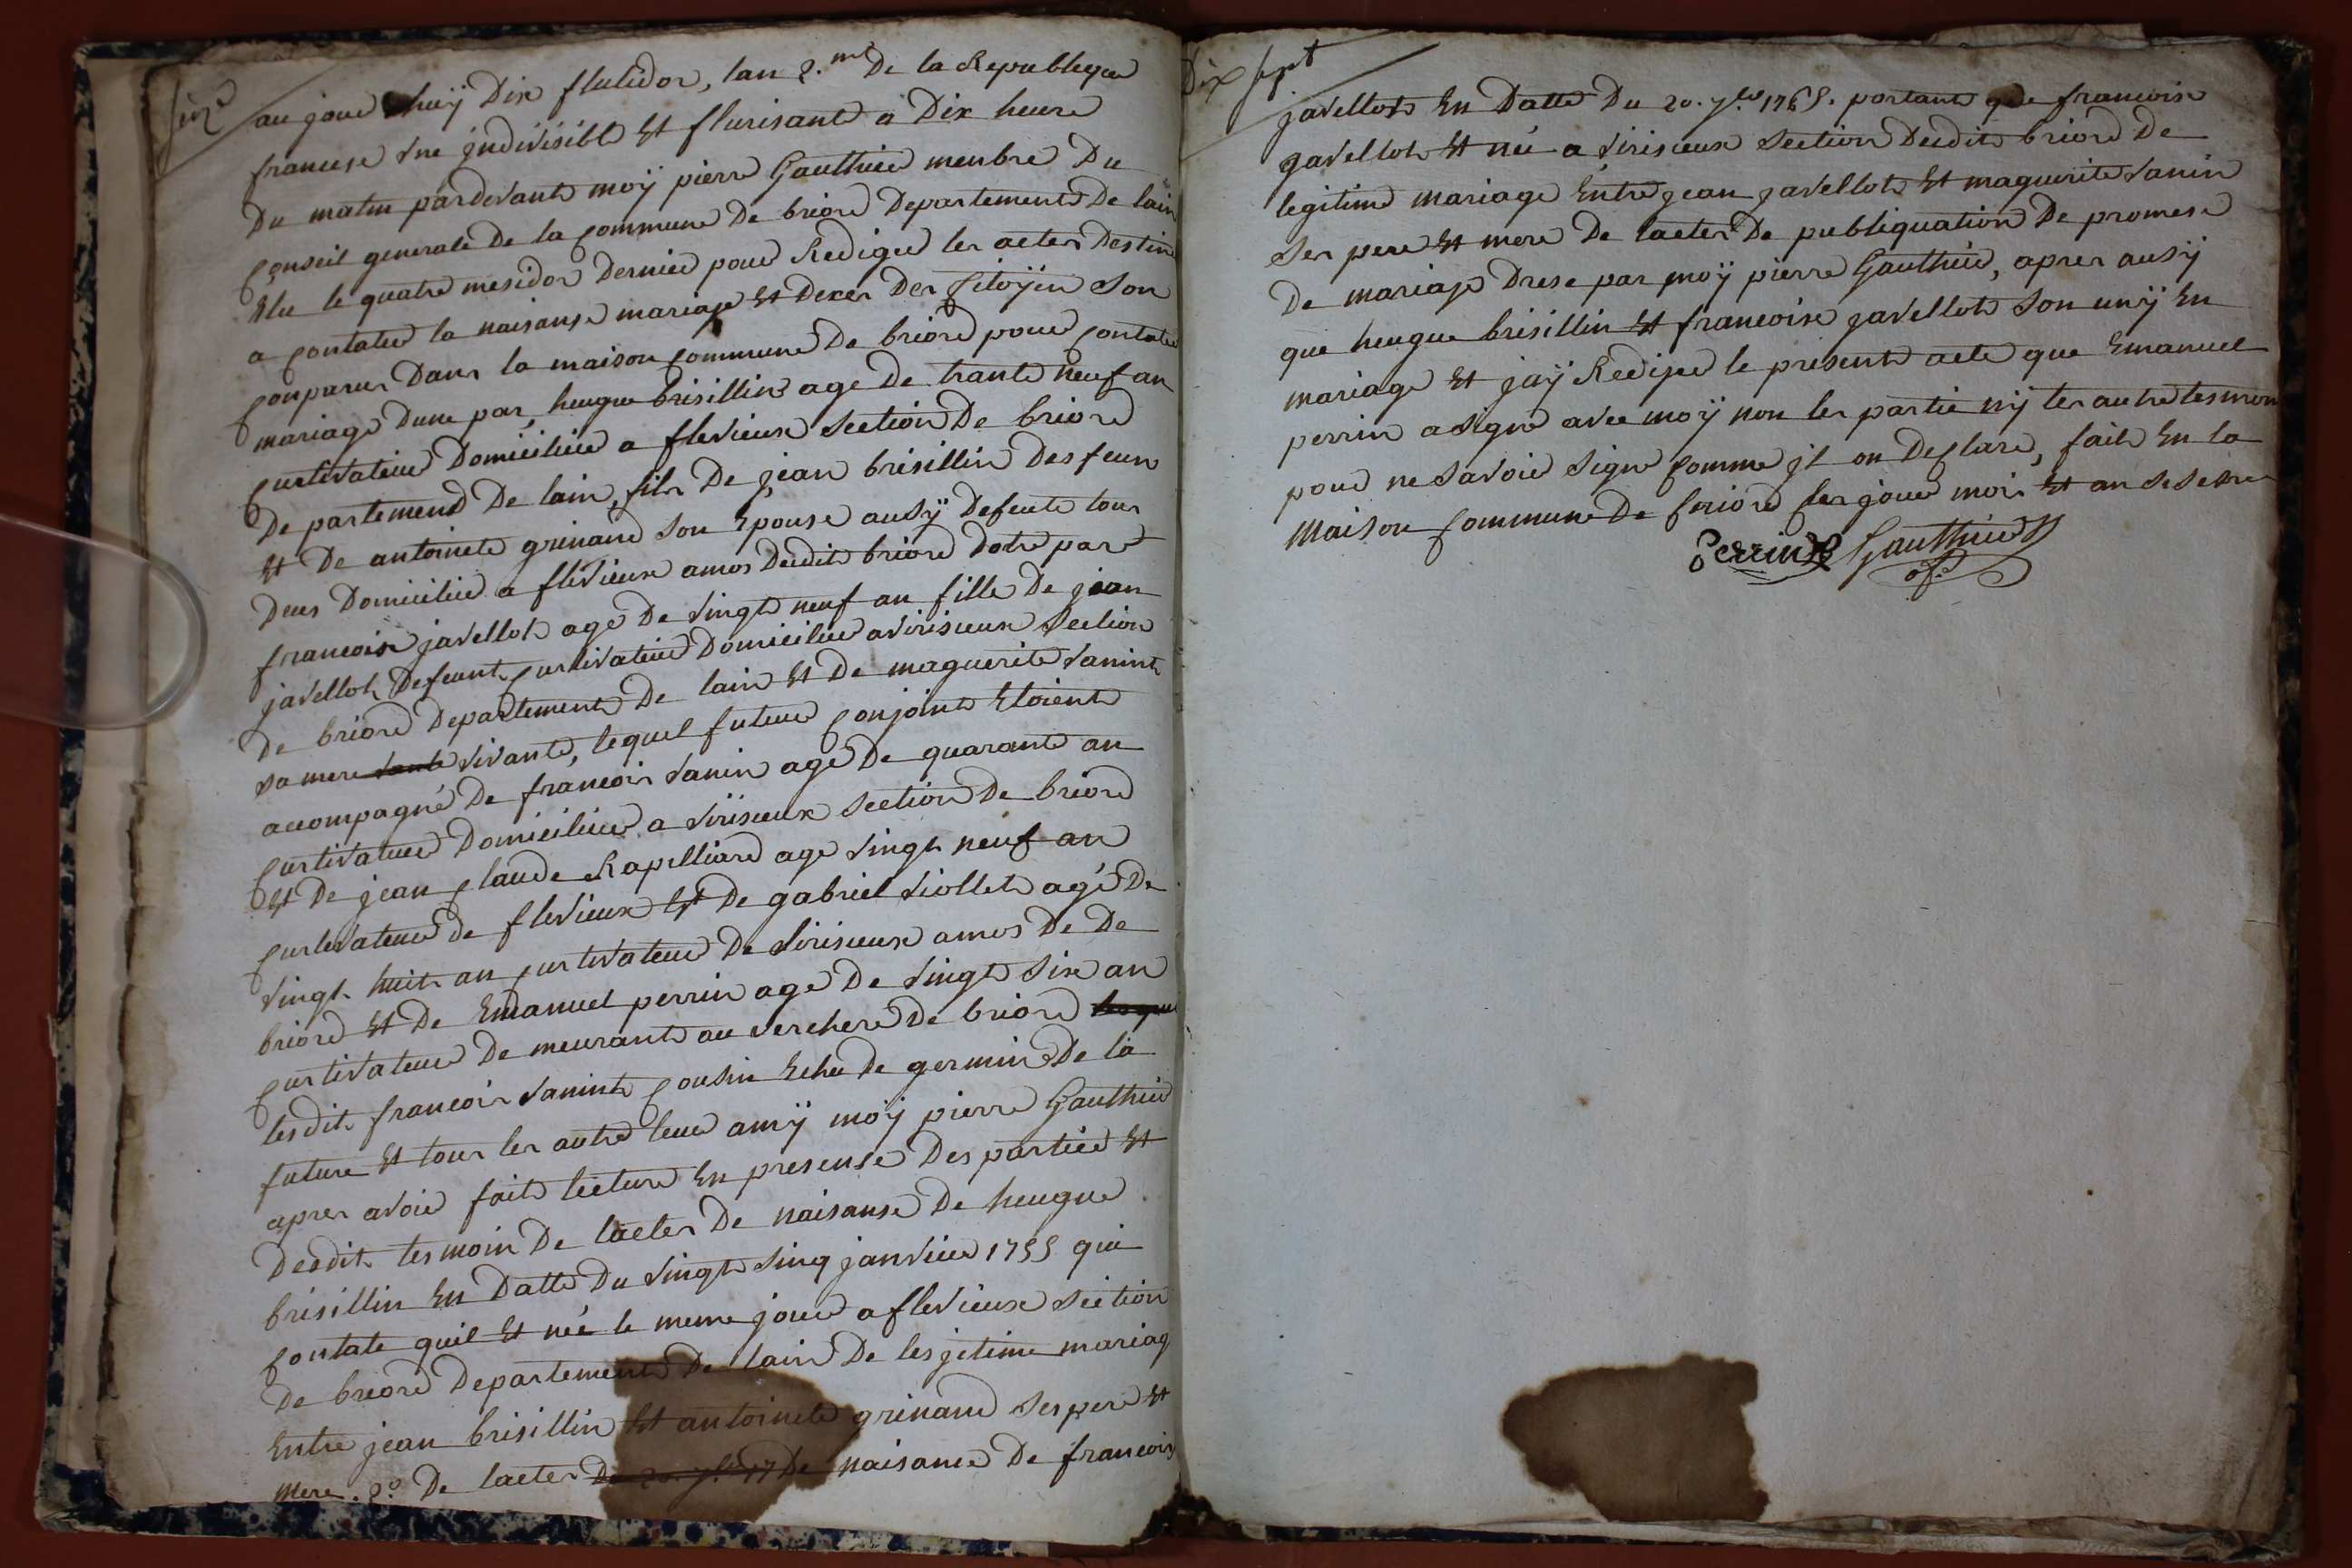 seize
au jourdhuÿ Dix flutidor, lan 2.me De la Republeque
franсese une jndivisible Et flurisante a Dix heure
Du matin pardevant moÿ pierre Gauthier menbre Du
Conseil generale De la Commune De briord Departement De lain
Elu le quatre mesidor Dernier pour Rediger les actes Destine
a Contater la naisanse mariage Et Deces Des Citoÿin Son
Conparus Dans la maison Commune De briord pour Contater
mariage Dune par heugue brisillin age De trante neuf an
Curtivateur Domicilier a flevieux Section De briord
Departement De lain fils De jean brisillin Desfeun
Et De antoinete grinand Son Epouse ausÿ Defeute tous
Deus Domicilier a flevieux amos Dudit briord Dotre part
francoise javellot age De vingt neuf an fille De jean
javellot Defeunt Curtivateur Domicilier a virisieux Section
De briord Departement De lain Et De maguerite vanint
Sa mere vivante, lequel futeur Conjoint Etoient
acompagné De francois vanin age De quarante an
Curtivateur Domicilier a virisieux Section De briord
Et De jean Claude Rapilliard age vingt neuf an
Curtevateur de flevieux Et De gabriel viollet agé De
vingt huit an Curtivateur De virisieux amos De De
briord Et De Emanuel perrin age De vingt Six an
Curtivateur De meurant au vercherd De briord les que
lesdit francois vanint Cousin Echu De germin De la
future Et tous les autre leur amÿ moÿ pierre Gauthier
apres avoir fait lecture En presense Des partiee Et
Desdit tesmoin De lactes De naisanse De heugue
brisillin En Datte Du vingt Sinq janvier 1755 qui
Contate quil Et neé le meme jour a flevieux Section
De briord Departement De lain De lesjetime mariag
Entre jean brisillin Et antoinete grinand Ses pere Et
mere. 2.o De lactes De 20. 7.bre 17 De naisance De francois
Dix sept
javellot En Datte Du 20. 7.bre 1765. portant que francoise
javellot Et neé a virisieux Section Dudit briord De
legitime mariage Entre jean javellot Et maguerite vanin
Ses pere Et mere De lactes De publiquation De promese
De mariage Drese par moÿ pierre Gauthier, apres ausÿ
que heugue brisillin Et francoise javellot Son unÿ En
mariage Et jaÿ Redijer le present acte que Emanuel
perrin a Signe avec moÿ non les partie nÿ les autre tesmoin
pour ne Savoir Signe Comme jl on Declare, fait En la
maison Commune De briord les jour mois Et an Sesedsus
Perrin Gauthier
of.